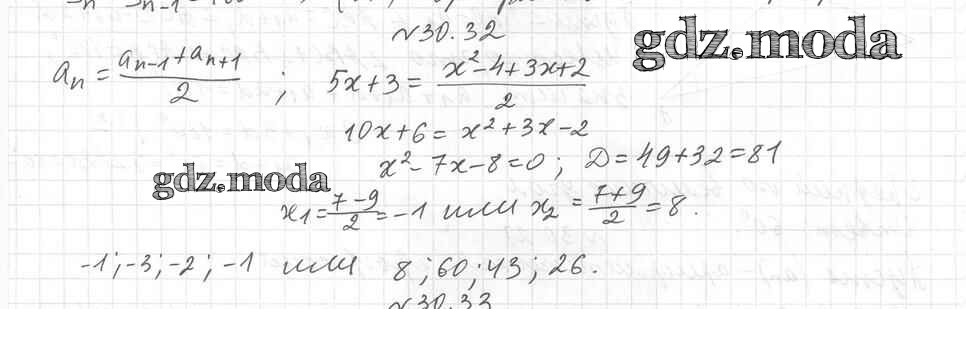 №30.32
gdz.moda
aₙ = (aₙ₋₁ + aₙ₊₁)/2 ; 5x+3 = (x²-4+3x+2)/2
10x+6 = x²+3x-2
x²-7x-8=0; D=49+32=81
gdz.moda
x₁ = (7-9)/2 = -1 или x₂ = (7+9)/2 = 8.
-1; -3; -2; -1 или 8; 60; 43; 26.
№30.33